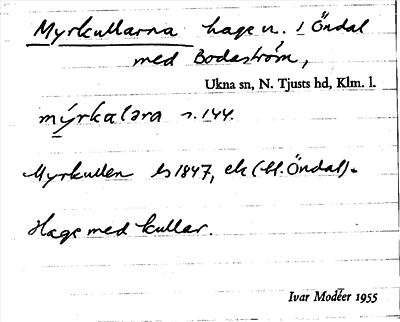 Myrkullarna hage u. l Öndal
med Bodaström,
Ukna sn, N. Tjusts hd, Klm. l.
mýrkaləra s. 144.
Myrkullen Es 1847, ek (U. Öndal).
Hage med kullar.
Ivar Modéer 1955